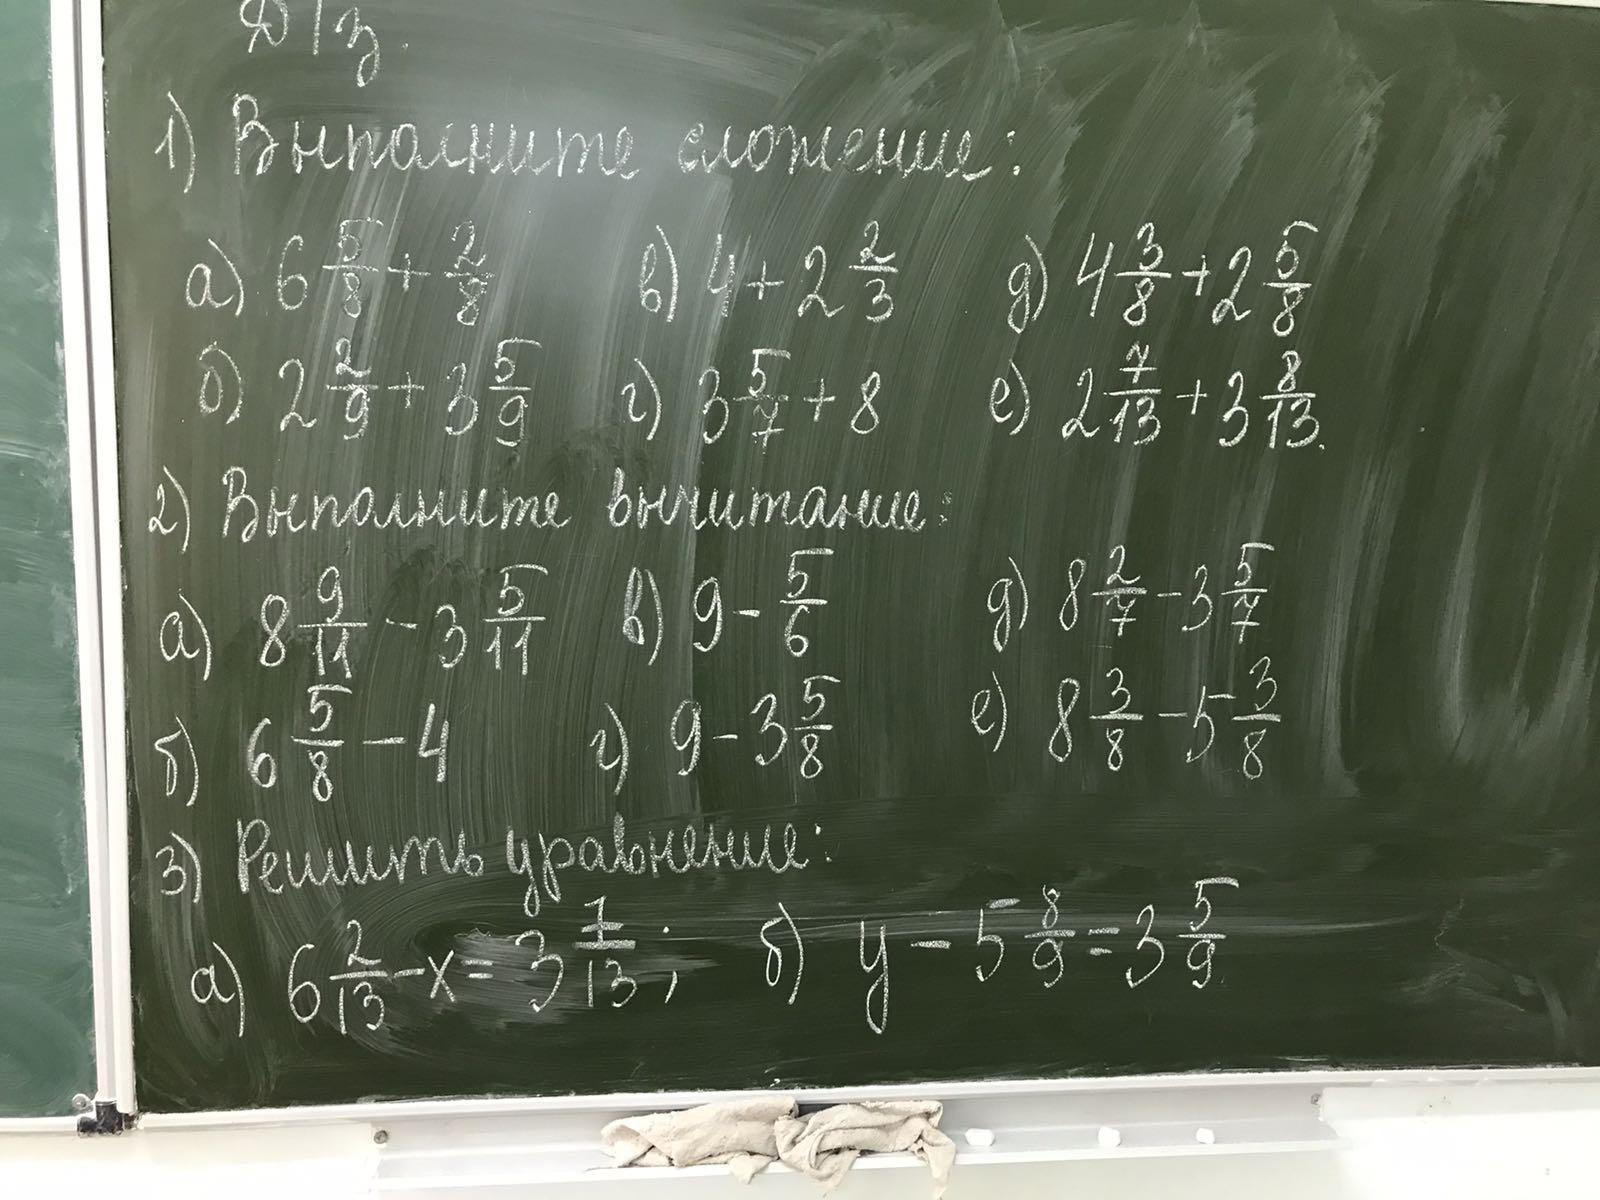 Д/з.
1) Выполните сложение:
а) 6 5/8 + 2/8 в) 4 + 2 2/3 д) 4 3/8 + 2 5/8
б) 2 2/9 + 3 5/9 г) 3 5/7 + 8 е) 2 7/13 + 3 8/13.
2) Выполните вычитание:
а) 8 9/11 - 3 5/11 в) 9 - 5/6 д) 8 2/7 - 3 5/7
б) 6 5/8 - 4 г) 9 - 3 5/8 е) 8 3/8 - 5 3/8
3) Решить уравнение:
а) 6 2/13 - x = 3 7/13; б) y - 5 8/9 = 3 5/9